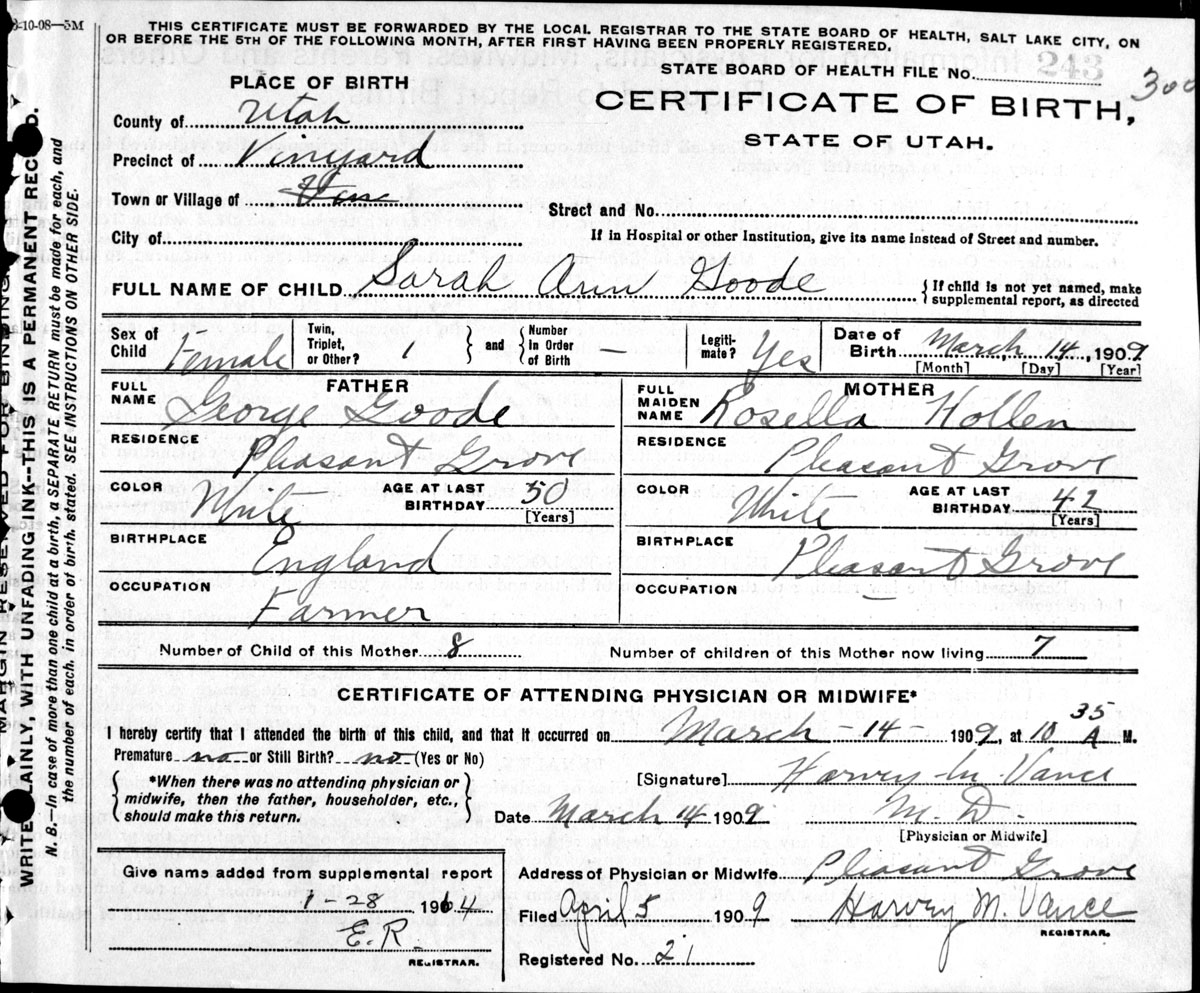 3-10-08—5M
THIS CERTIFICATE MUST BE FORWARDED BY THE LOCAL REGISTRAR TO THE STATE BOARD OF HEALTH, SALT LAKE CITY, ON
OR BEFORE THE 5TH OF THE FOLLOWING MONTH, AFTER FIRST HAVING BEEN PROPERLY REGISTERED.
PLACE OF BIRTH
STATE BOARD OF HEALTH FILE No. 243
300
County of Utah
CERTIFICATE OF BIRTH,
STATE OF UTAH.
Precinct of Vinyard
Town or Village of
Street and No.
City of
If in Hospital or other Institution, give its name instead of Street and number.
FULL NAME OF CHILD Sarah Ann Goode { If child is not yet named, make
supplemental report, as directed
Sex of Child Female
Twin, Triplet, or Other? 1 } and { Number In Order of Birth —
Legiti- mate? Yes
Date of Birth March, 14, 1909
[Month] [Day] [Year]
FATHER
FULL NAME George Goode
MOTHER
FULL MAIDEN NAME Rosella Hollen
RESIDENCE Pleasant Grove
RESIDENCE Pleasant Grove
COLOR White AGE AT LAST BIRTHDAY 50 [Years]
COLOR White AGE AT LAST BIRTHDAY 42 [Years]
BIRTHPLACE England
BIRTHPLACE Pleasant Grove
OCCUPATION Farmer
OCCUPATION —
Number of Child of this Mother 8
Number of children of this Mother now living 7
CERTIFICATE OF ATTENDING PHYSICIAN OR MIDWIFE*
I hereby certify that I attended the birth of this child, and that it occurred on March - 14 - 1909, at 10 35 A M.
Premature no or Still Birth? no (Yes or No)
{ *When there was no attending physician or }
midwife, then the father, householder, etc.,
should make this return.
[Signature] Harvey M. Vance
Date March 14 1909 M. D.
[Physician or Midwife]
Give name added from supplemental report
1-28 1964
E.R.
REGISTRAR.
Address of Physician or Midwife Pleasant Grove
Filed April 5 1909 Harvey M. Vance
REGISTRAR.
Registered No. 21
MARGIN RESERVED FOR BINDING.
WRITE PLAINLY, WITH UNFADING INK--THIS IS A PERMANENT RECORD.
N. B.—In case of more than one child at a birth, a SEPARATE RETURN must be made for each, and
the number of each, in order of birth, stated. SEE INSTRUCTIONS ON OTHER SIDE.